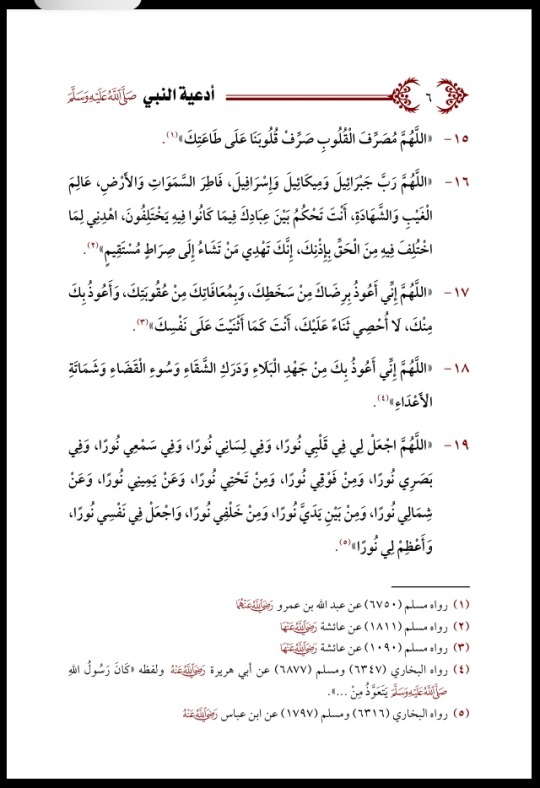 ٦ أدعية النبي صَلَّى اللَّهُ عَلَيْهِ وَسَلَّمَ
١٥- «اللَّهُمَّ مُصَرِّفَ الْقُلُوبِ صَرِّفْ قُلُوبَنَا عَلَى طَاعَتِكَ»(١).
١٦- «اللَّهُمَّ رَبَّ جَبْرَائِيلَ وَمِيكَائِيلَ وَإِسْرَافِيلَ، فَاطِرَ السَّمَوَاتِ وَالْأَرْضِ، عَالِمَ
الْغَيْبِ وَالشَّهَادَةِ، أَنْتَ تَحْكُمُ بَيْنَ عِبَادِكَ فِيمَا كَانُوا فِيهِ يَخْتَلِفُونَ، اهْدِنِي لِمَا
اخْتُلِفَ فِيهِ مِنَ الْحَقِّ بِإِذْنِكَ، إِنَّكَ تَهْدِي مَنْ تَشَاءُ إِلَى صِرَاطٍ مُسْتَقِيمٍ»(٢).
١٧- «اللَّهُمَّ إِنِّي أَعُوذُ بِرِضَاكَ مِنْ سَخَطِكَ، وَبِمُعَافَاتِكَ مِنْ عُقُوبَتِكَ، وَأَعُوذُ بِكَ
مِنْكَ، لَا أُحْصِي ثَنَاءً عَلَيْكَ، أَنْتَ كَمَا أَثْنَيْتَ عَلَى نَفْسِكَ»(٣).
١٨- «اللَّهُمَّ إِنِّي أَعُوذُ بِكَ مِنْ جَهْدِ الْبَلَاءِ وَدَرَكِ الشَّقَاءِ وَسُوءِ الْقَضَاءِ وَشَمَاتَةِ
الْأَعْدَاءِ»(٤).
١٩- «اللَّهُمَّ اجْعَلْ لِي فِي قَلْبِي نُورًا، وَفِي لِسَانِي نُورًا، وَفِي سَمْعِي نُورًا، وَفِي
بَصَرِي نُورًا، وَمِنْ فَوْقِي نُورًا، وَمِنْ تَحْتِي نُورًا، وَعَنْ يَمِينِي نُورًا، وَعَنْ
شِمَالِي نُورًا، وَمِنْ بَيْنِ يَدَيَّ نُورًا، وَمِنْ خَلْفِي نُورًا، وَاجْعَلْ فِي نَفْسِي نُورًا،
وَأَعْظِمْ لِي نُورًا»(٥).
(١) رواه مسلم (٦٧٥٠) عن عبد الله بن عمرو رَضِيَ اللَّهُ عَنْهُمَا
(٢) رواه مسلم (١٨١١) عن عائشة رَضِيَ اللَّهُ عَنْهَا
(٣) رواه مسلم (١٠٩٠) عن عائشة رَضِيَ اللَّهُ عَنْهَا
(٤) رواه البخاري (٦٣٤٧) ومسلم (٦٨٧٧) عن أبي هريرة رَضِيَ اللَّهُ عَنْهُ ولفظه «كَانَ رَسُولُ اللهِ
صَلَّى اللَّهُ عَلَيْهِ وَسَلَّمَ يَتَعَوَّذُ مِنْ ...».
(٥) رواه البخاري (٦٣١٦) ومسلم (١٧٩٧) عن ابن عباس رَضِيَ اللَّهُ عَنْهُ